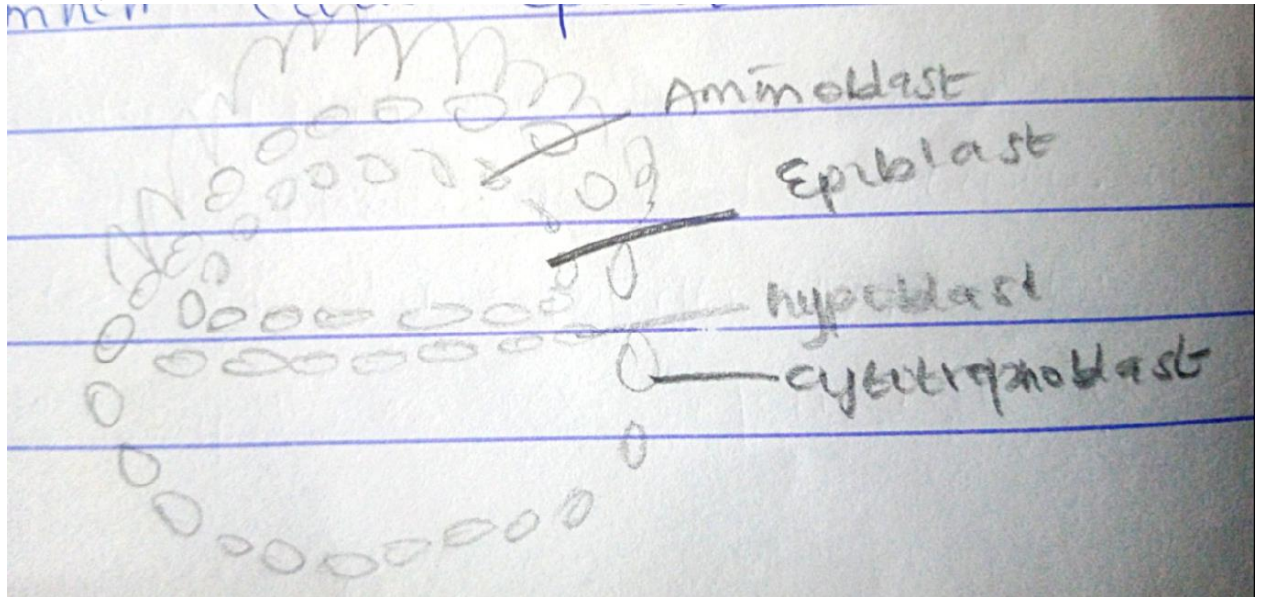 Aminoblast
Epiblast
hypoblast
cytotrophoblast